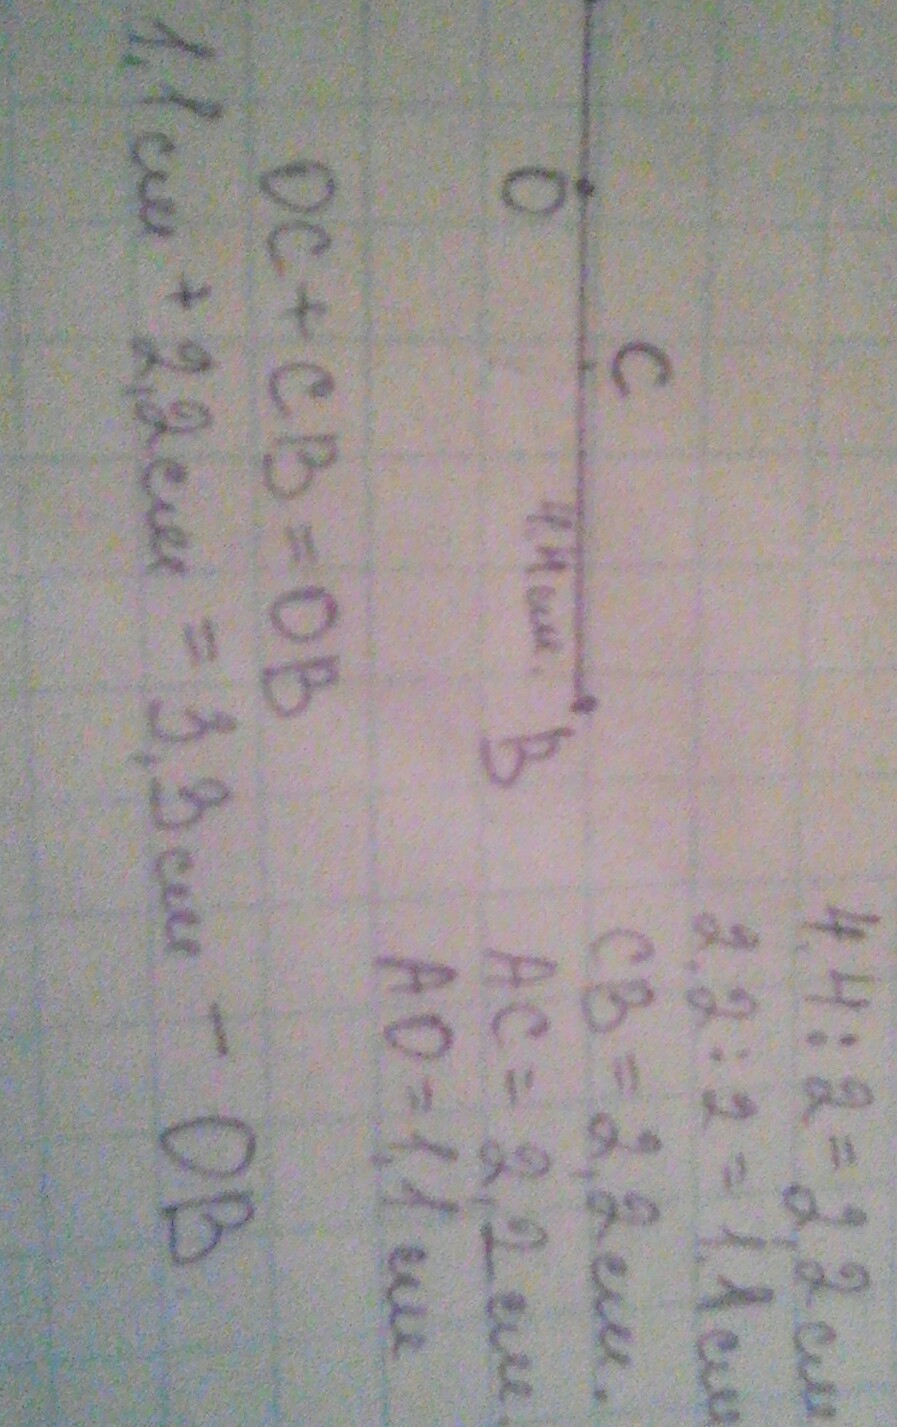 C
O
4,4 см.
B
4,4 : 2 = 2,2 см
2,2 : 2 = 1,1 см
CB = 2,2 см.
AC = 2,2 см.
AO = 1,1 см
OC + CB = OB
1,1 см + 2,2 см = 3,3 см - OB